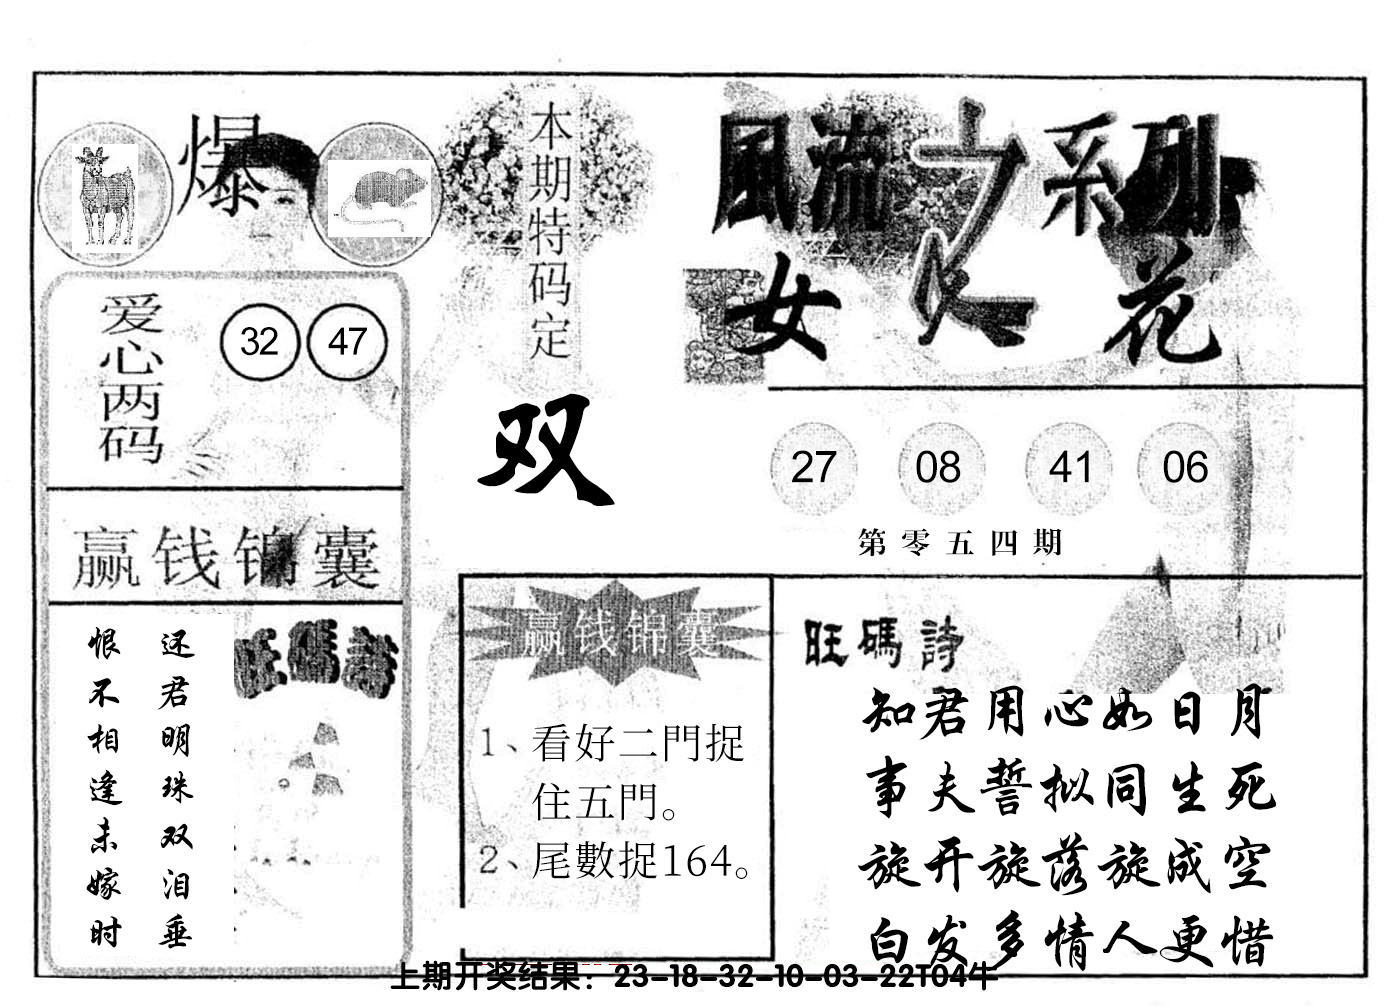 爆
本期特码定
双
風流之系列
女人花
爱心两码
32 47
27 08 41 06
第零五四期
赢钱锦囊
还君明珠双泪垂
恨不相逢未嫁时
旺碼詩
赢钱锦囊
1、看好二門捉
住五門。
2、尾數捉164。
旺碼詩
知君用心如日月
事夫誓拟同生死
旋开旋落旋成空
白发多情人更惜
上期开奖结果：23-18-32-10-03-22T04牛